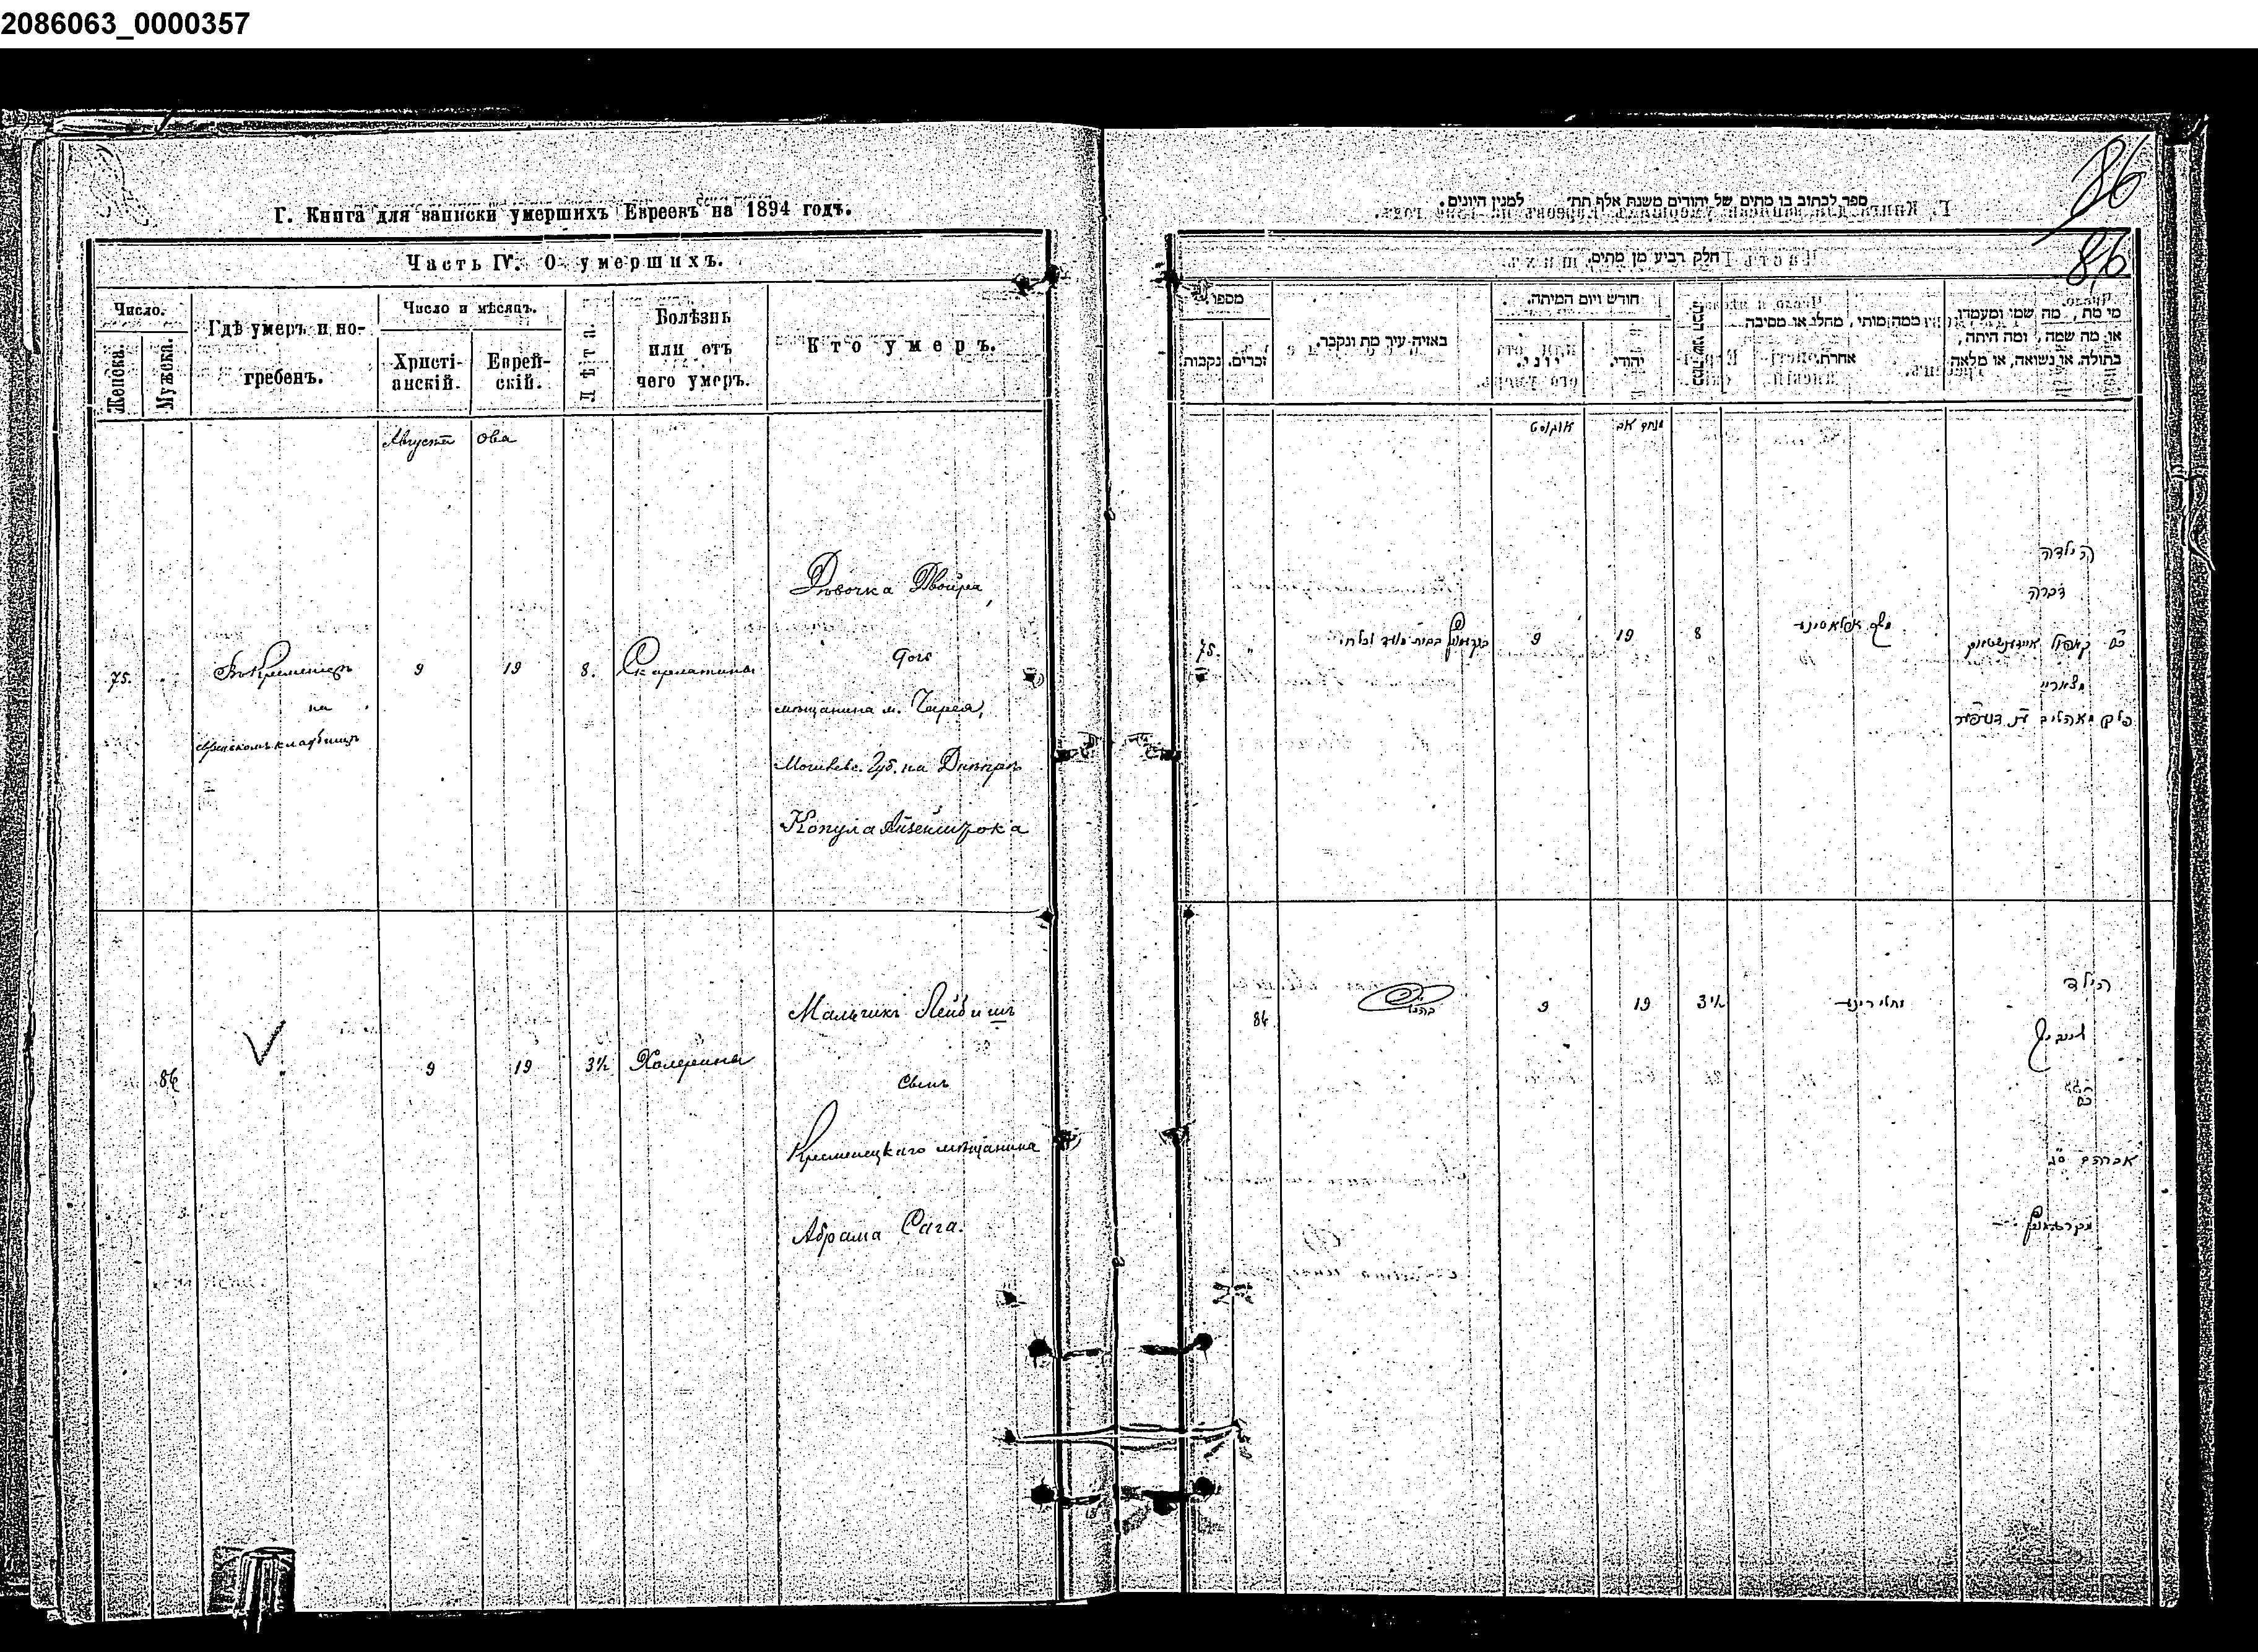 2086063_0000357
Г. Книга для записки умершихъ Евреевъ на 1894 годъ.
Часть IV. О умершихъ.
Число.
Женска.
Мужеска.
Гдѣ умеръ и по-
гребенъ.
Число и мѣсяцъ.
Христі-
анскій.
Еврей-
скій.
Лѣта.
Болѣзнь
или отъ
чего умеръ.
Кто умеръ.
Августа
Ова
75.
Въ Кременцѣ
на
еврейскомъ кладбищѣ
9
19
8.
Скарлатина
Дѣвочка Двойра,
дочь
мѣщанина м. Черея,
Могилевс. Губ. на Днѣпрѣ
84
9
19
3½
Холерина
Мальчикъ Лейбишъ
сынъ
Кременецкаго мѣщанина
Абрама Сага.
86
86
ספר לכתוב בו מתים של יהודים משנת אלף תת׳ למנין היונים.
חלק רביע מן מתים.
מספר.
נקבות
זכרים.
באיזה עיר מת ונקבר.
חודש ויום המיתה.
יוני.
יהודי.
כמה שני
ממה מותי, מחלי או מסיבה
אחרת.
מי מת, מה שמו ומעמדו,
או מה שמה, ומה היתה,
בתולה, או נשואה, או מלאה
אוגוסט
מנחם אב
הילדה
דברה
8
19
9
75.
הילד
3½
19
9
84
אברהם סג